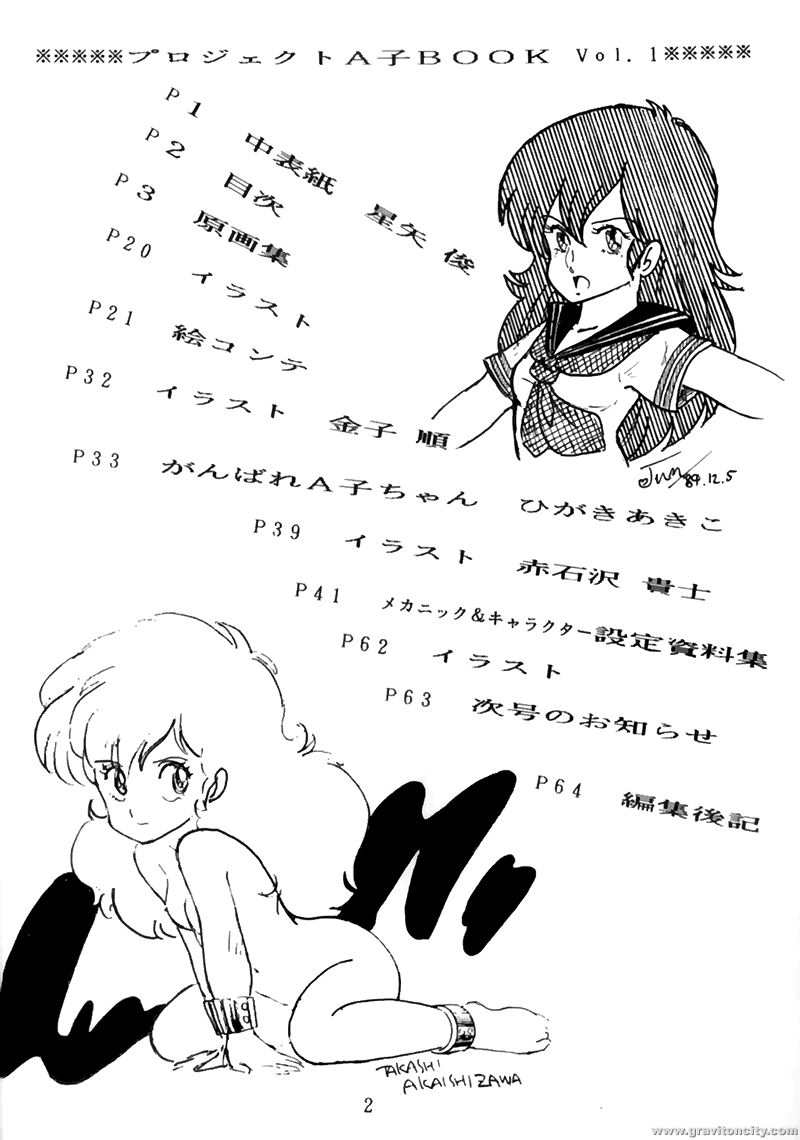 ※※※※※プロジェクトA子BOOK Vol.1※※※※※
P1 中表紙 星矢 俊
P2 目次
P3 原画集
P20 イラスト
P21 絵コンテ
P32 イラスト 金子 順
P33 がんばれA子ちゃん ひがきあきこ
P39 イラスト 赤石沢 貴士
P41 メカニック&キャラクター設定資料集
P62 イラスト
P63 次号のお知らせ
P64 編集後記
Jun/89.12.5
TAKASHI
AKAISHIZAWA
2
www.gravitoncity.com